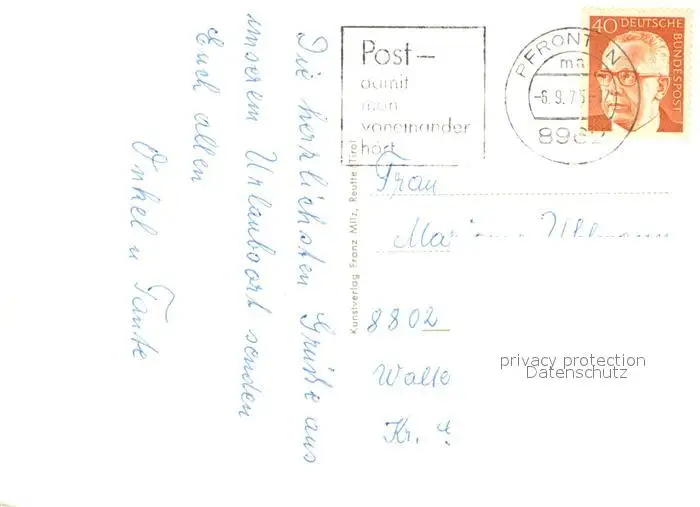 Die herzlichsten Grüße aus
unserem Urlaubsort senden
Euch allen
Onkel u Tante
Kunstverlag Franz Milz, Reutte (Tirol
Post–
damit
man
voneinander
hört
PFRONTEN
-6.9.7
40 DEUTSCHE
BUNDESPOST
Frau
8802
Kr.
privacy protection
Datenschutz